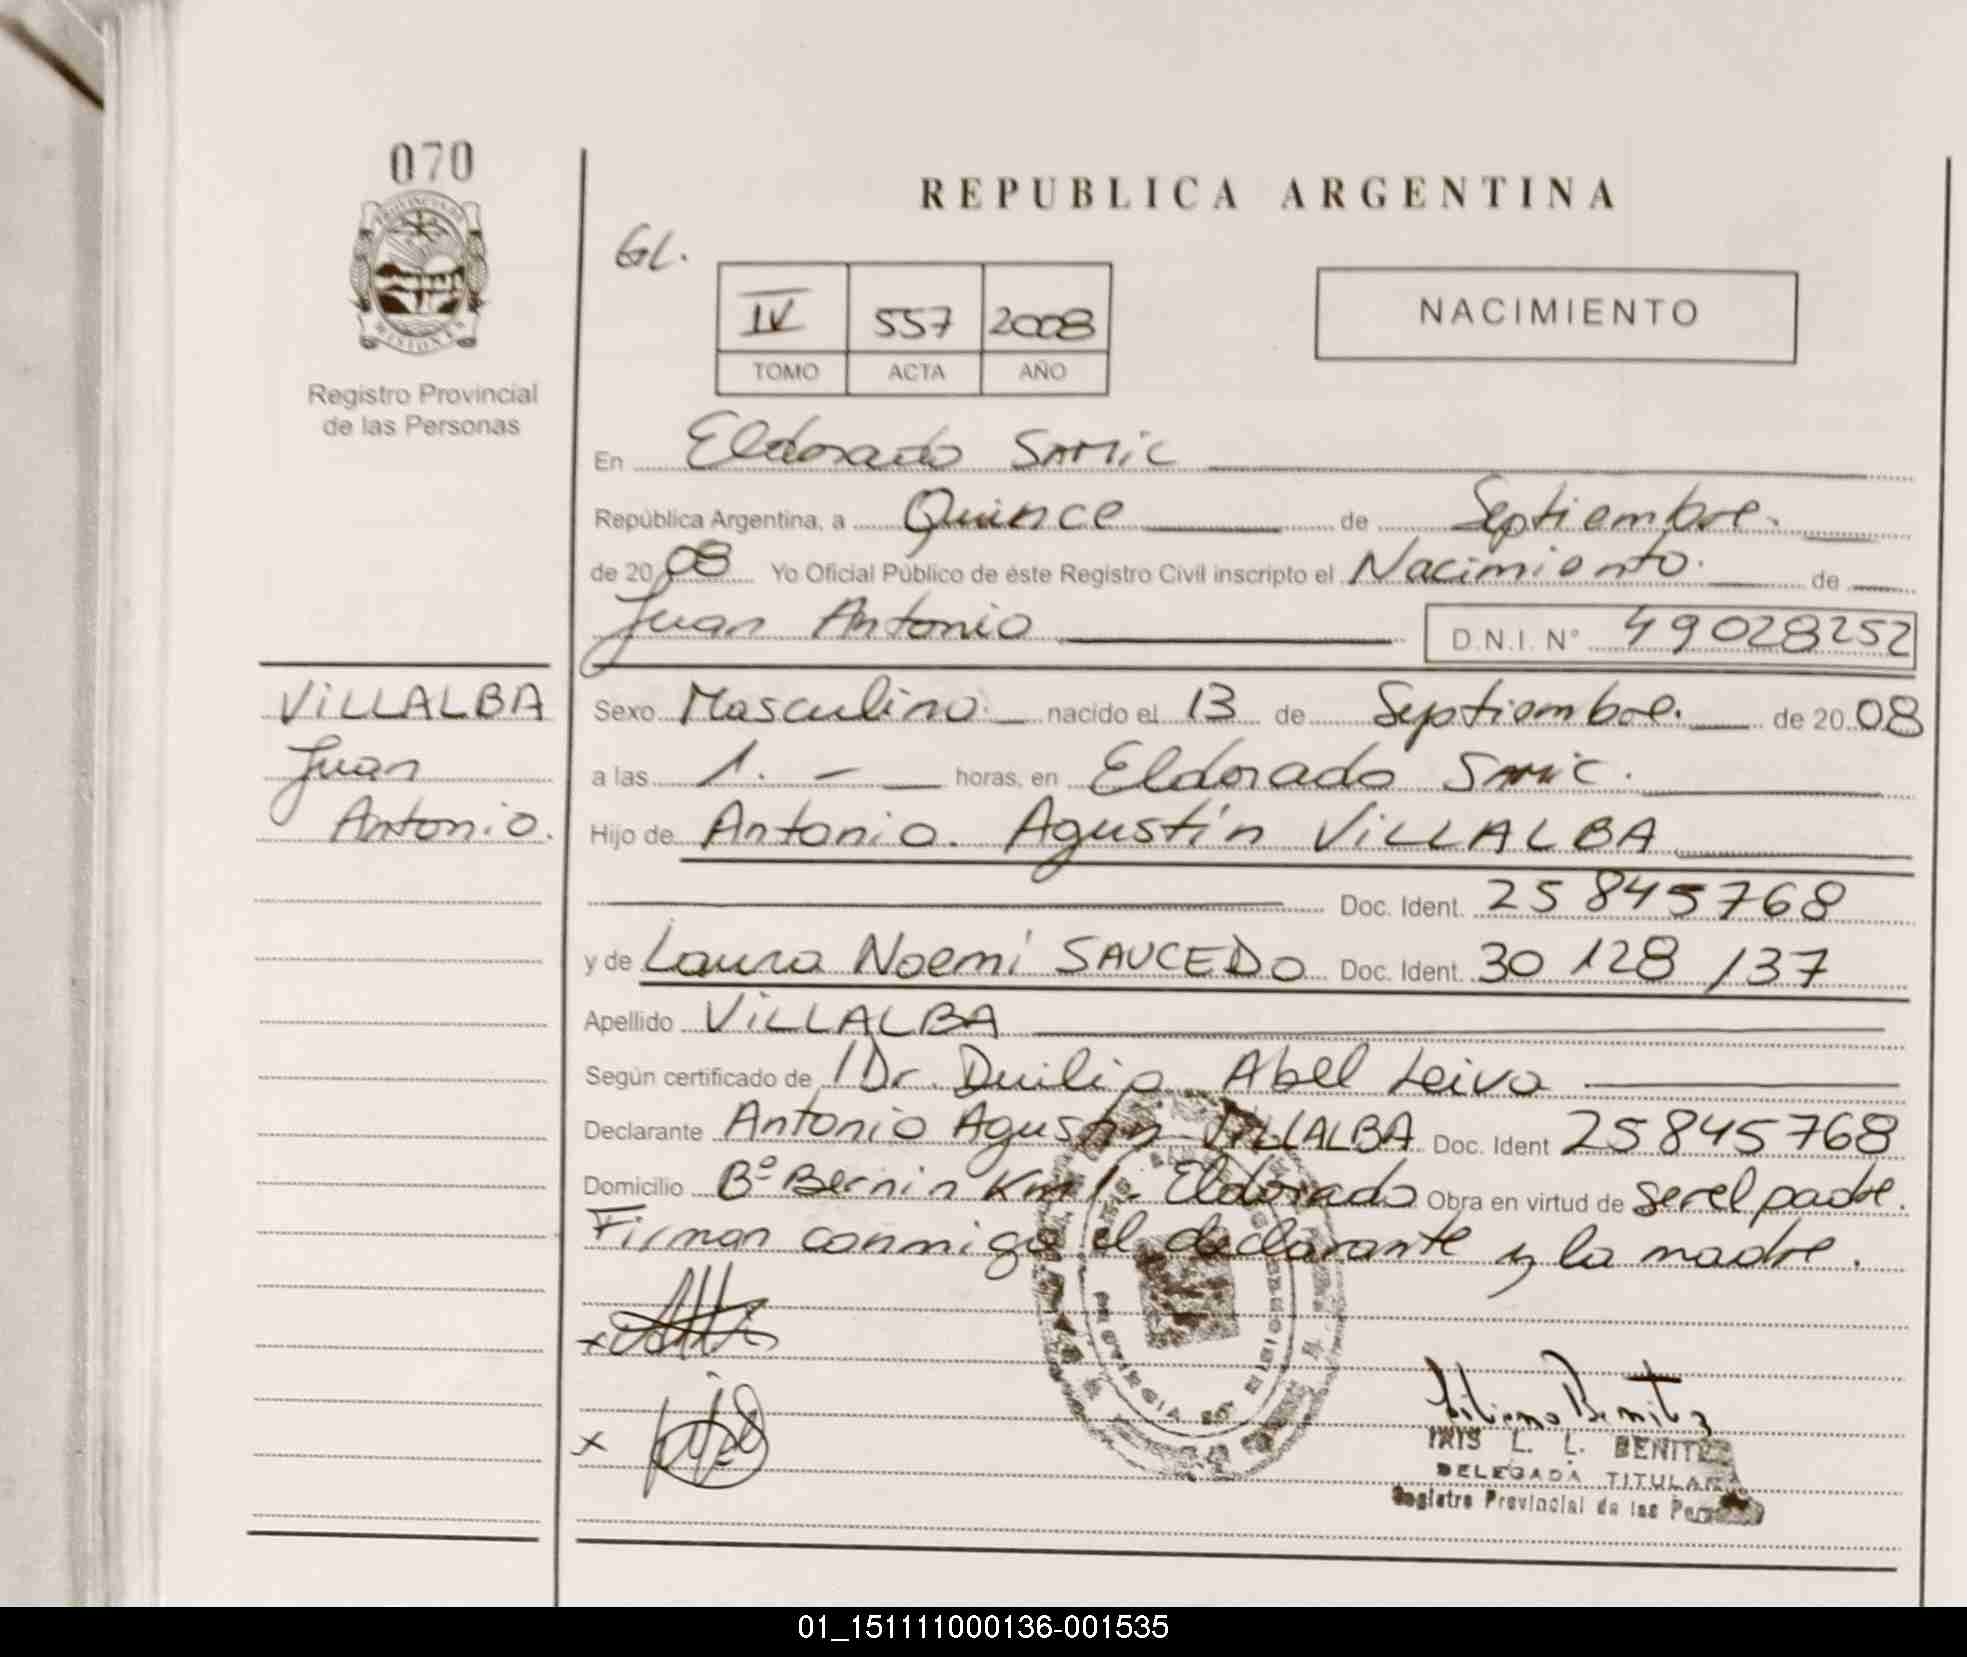 070
REPUBLICA ARGENTINA
GL.
IV 557 2008
TOMO ACTA AÑO
NACIMIENTO
Registro Provincial
de las Personas
En Eldorado SAMIC
República Argentina, a Quince de Septiembre.
de 2008 Yo Oficial Público de éste Registro Civil inscripto el Nacimiento. de
Juan Antonio D.N.I. N° 49028252
VILLALBA
Juan
Antonio.
Sexo Masculino. nacido el 13 de Septiembre. de 2008
a las 1. — horas, en Eldorado Samic.
Hijo de Antonio. Agustín VILLALBA
Doc. Ident. 25845768
y de Laura Noemi SAUCEDO Doc. Ident. 30 128 137
Apellido VILLALBA
Según certificado de Dr. Duilio Abel Leiva
Declarante Antonio Agustin VILLALBA Doc. Ident 25845768
Domicilio Bº Bernin Km 1. Eldorado Obra en virtud de ser el padre.
Firman conmigo el declarante y la madre.
x
x
Liliana Benitez
IRIS L. L. BENITEZ
DELEGADA TITULAR
Registro Provincial de las
01_151111000136-001535